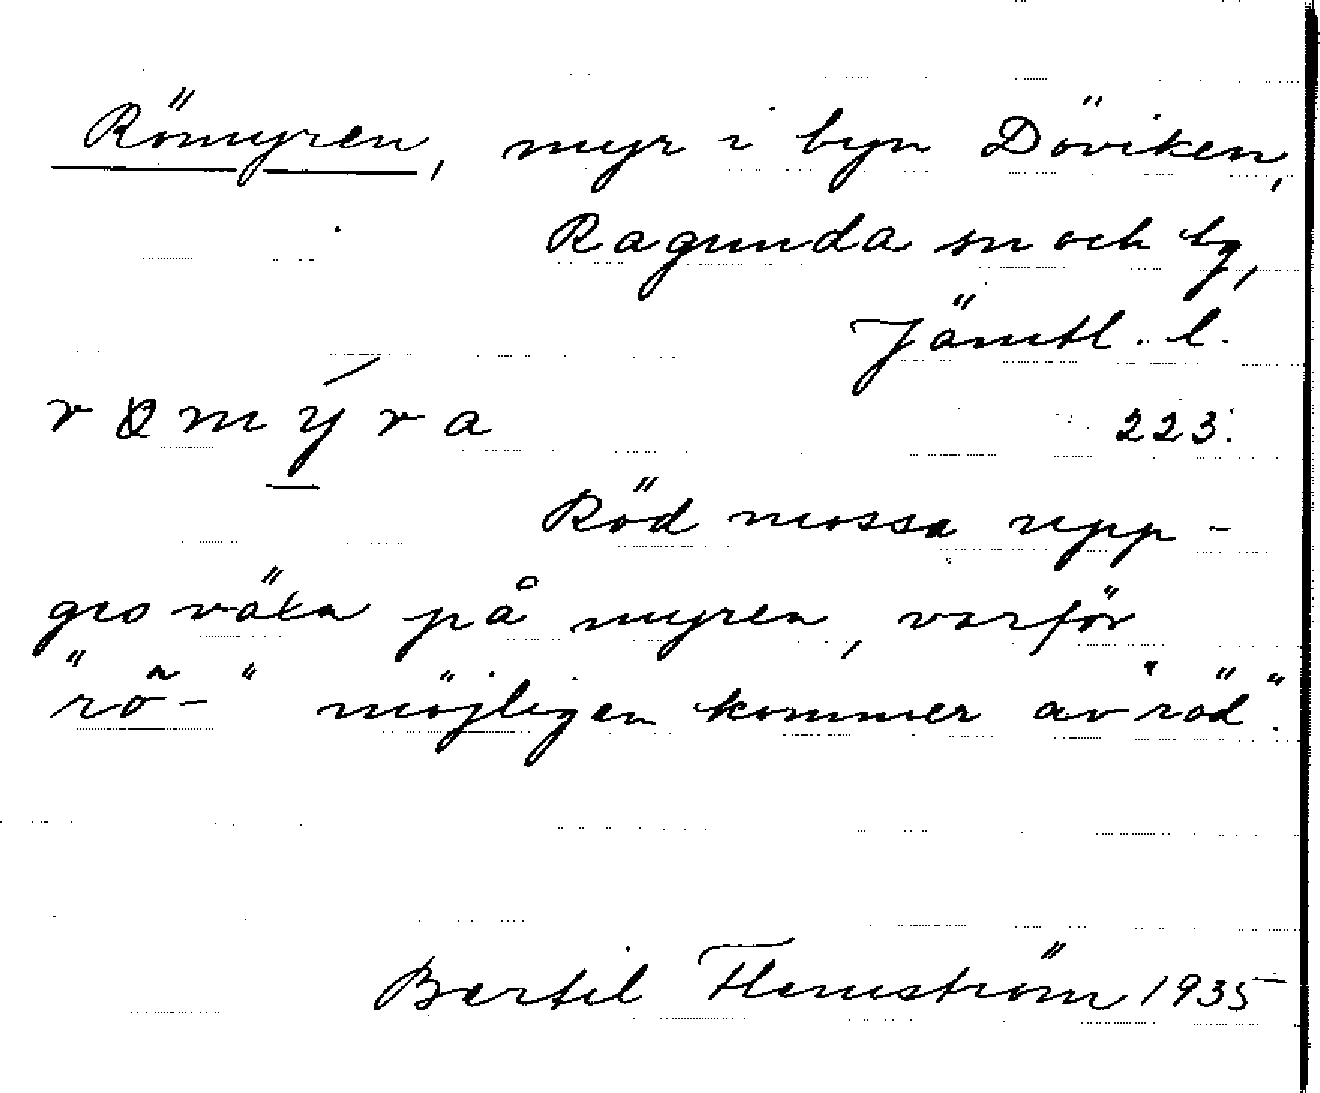 Römyren, myr i byn Döviken,
Ragunda sn och tg,
Jämtl. l.
rømýra 223.
Röd mossa upp-
ges växa på myren, varför
"rö-" möjligen kommer av "röd".
Bertil Flemström 1935